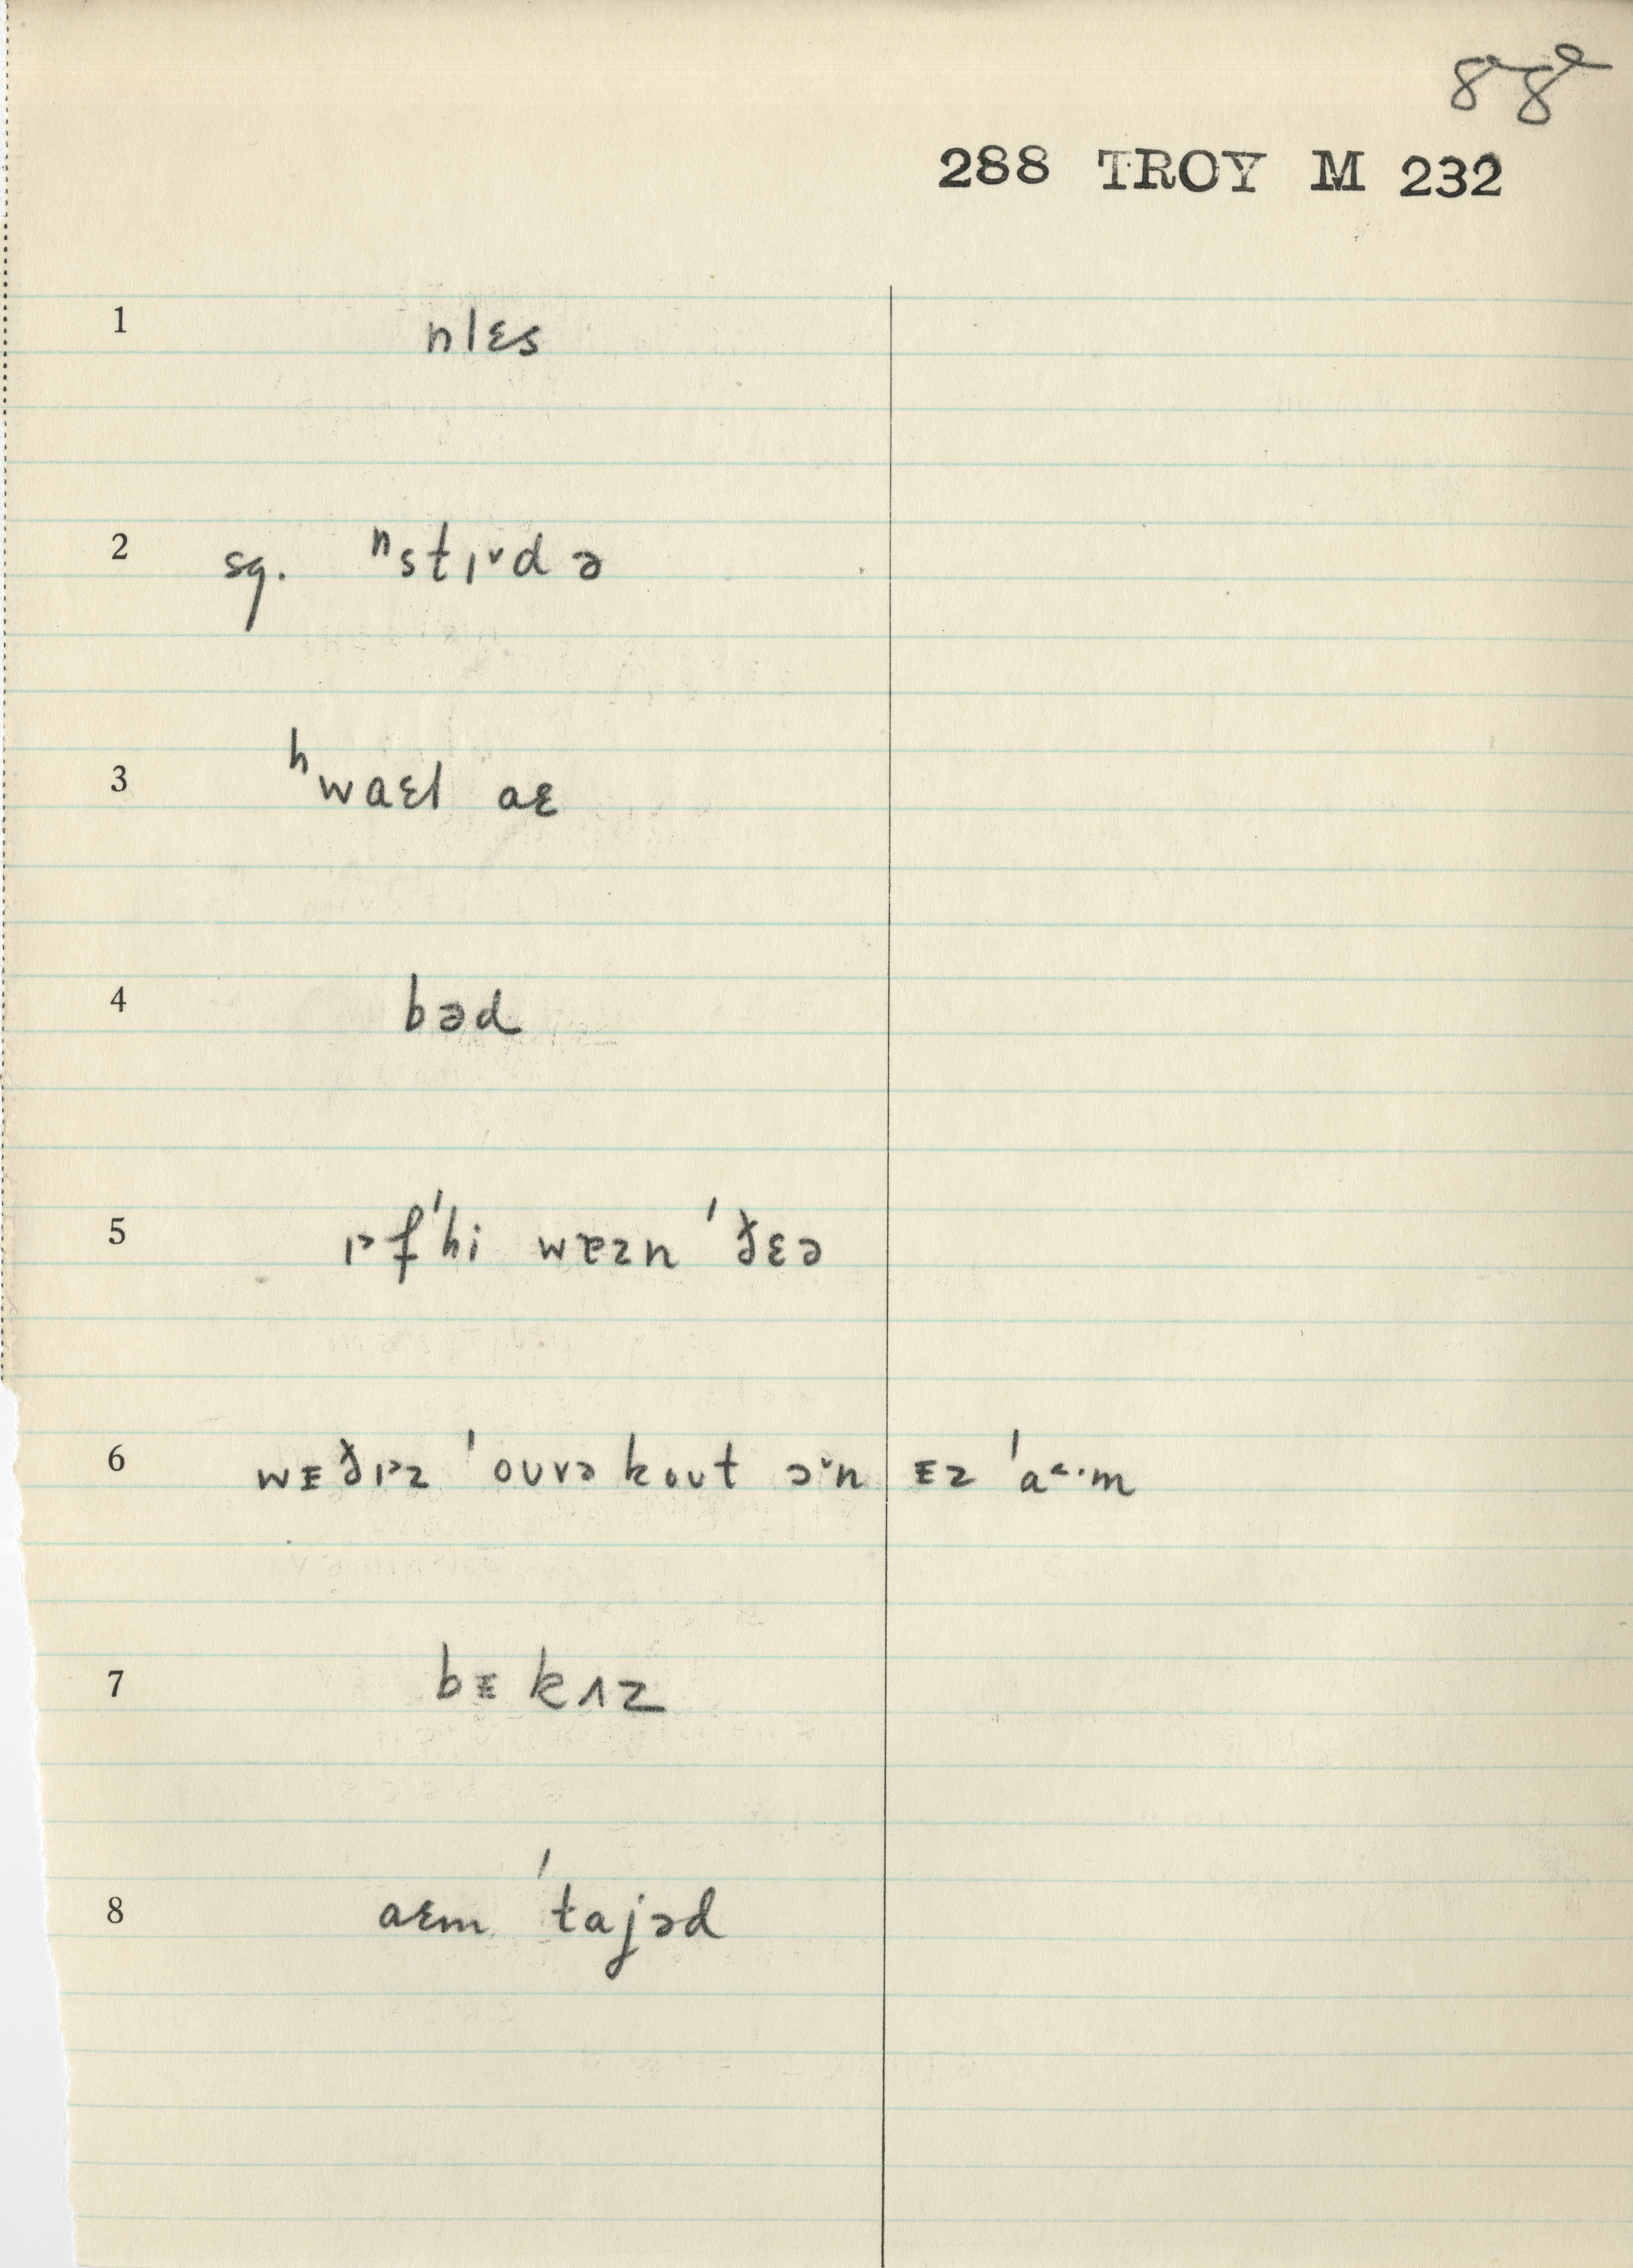 88
288 TROY M 232
1 nlɛs
2 sg. ⁿstɪ˅d ə
3 ʰwaɛl aɛ
4 bəd
5 ɪ˃f 'hi wɐzn 'ðɛə
6 wᴇðɪ˃z 'oʊvə koʊt ə˅n ᴇz 'a˂·m
7 bᴇkʌz
8 aɛm 'tajəd